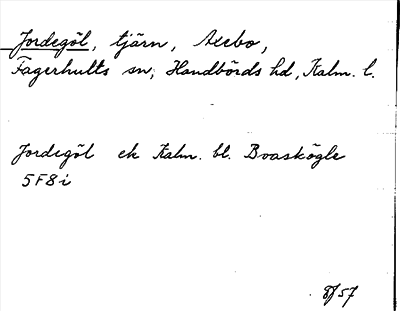 Jordegöl, tjärn, Axebo,
Fagerhults sn, Handbörds hd, Kalm. l.
Jordegöl ek Kalm. bl. Boaskögle
5F8i
57